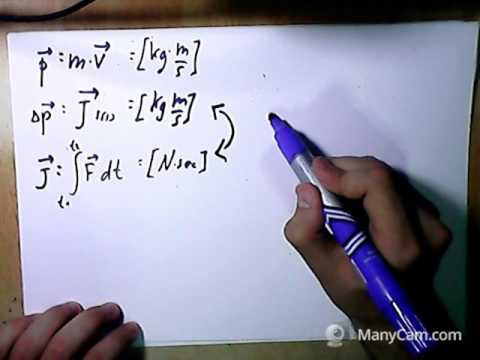 p⃗ = m·v⃗ = [kg·m/s]
Δp⃗ = J⃗ = [kg m/s]
J⃗ = ∫ F⃗ dt = [N·sec]
ManyCam.com